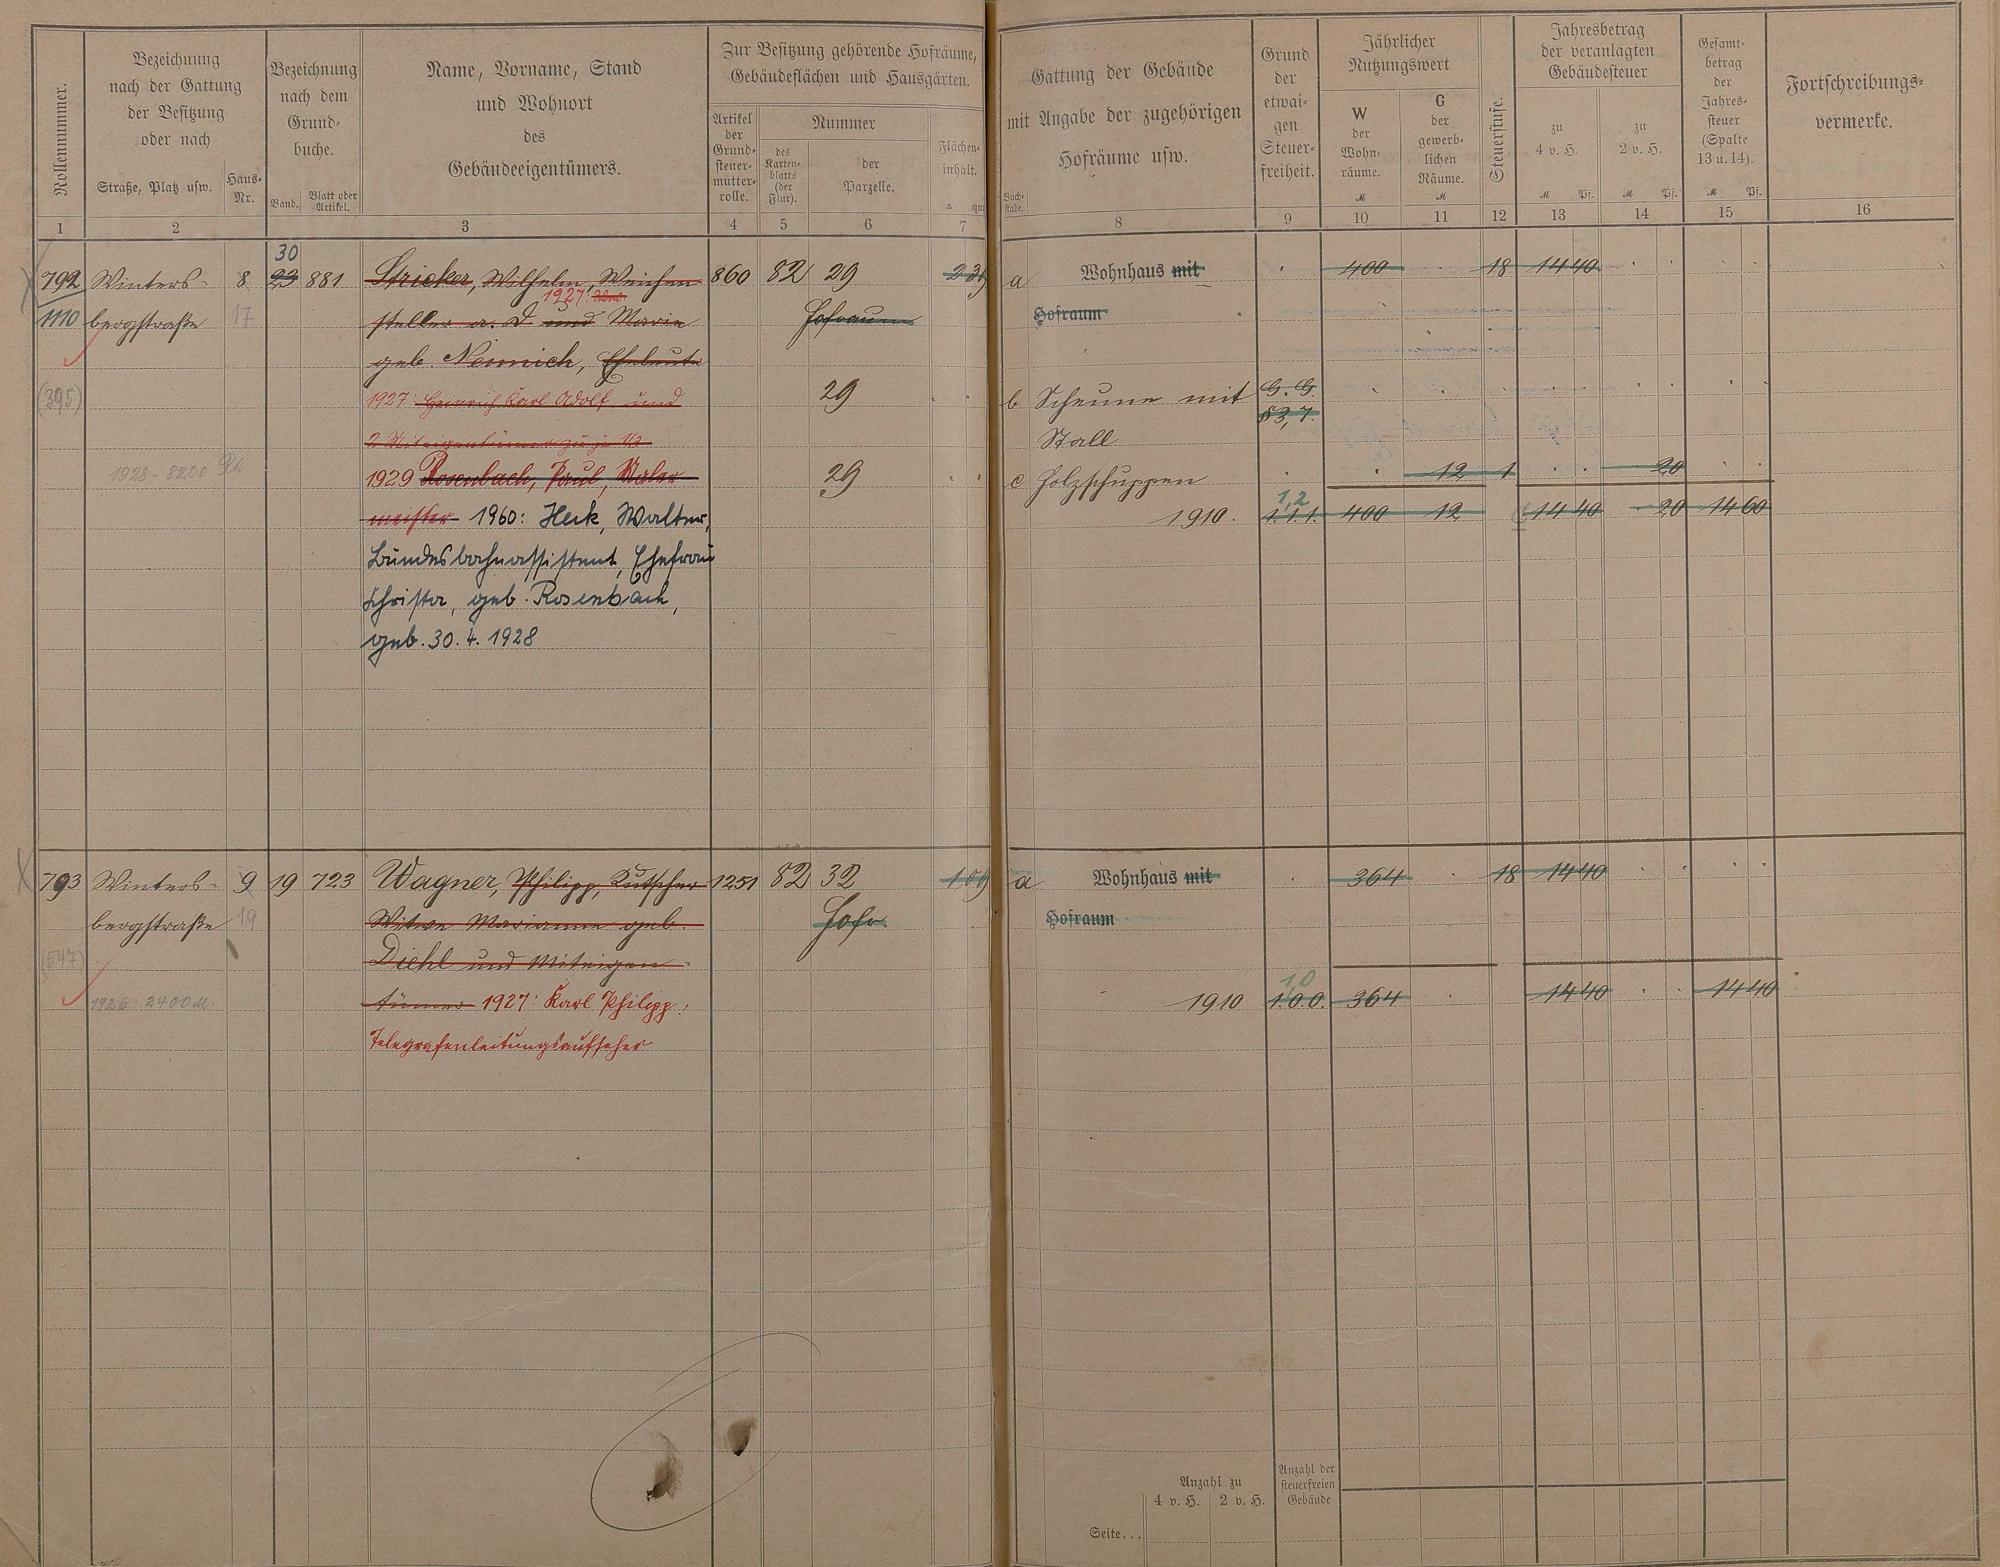 Rollennummer.
Bezeichnung
nach der Gattung
der Besitzung
oder nach
Straße, Platz usw.
Haus-
Nr.
Bezeichnung
nach dem
Grund-
buche.
Band.
Blatt oder
Artikel.
Name, Vorname, Stand
und Wohnort
des
Gebäudeeigentümers.
Zur Besitzung gehörende Hofräume,
Gebäudeflächen und Hausgärten.
Artikel
der
Grund-
steuer-
mutter-
rolle.
Nummer
des
Karten-
blatts
(der
Flur).
der
Parzelle.
Flächen-
inhalt.
a qm
Gattung der Gebäude
mit Angabe der zugehörigen
Hofräume usw.
Buch-
stabe.
Grund
der
etwai-
gen
Steuer-
freiheit.
Jährlicher
Nutzungswert
W
der
Wohn-
räume.
M
G
der
gewerb-
lichen
Räume.
M
Steuerstufe.
Jahresbetrag
der veranlagten
Gebäudesteuer
zu
4 v. H.
M Pf.
zu
2 v. H.
M Pf.
Gesamt-
betrag
der
Jahres-
steuer
(Spalte
13 u. 14).
M Pf.
Fortschreibungs-
vermerke.
1 2 3 4 5 6 7 8 9 10 11 12 13 14 15 16
30
792 Winters- 8 23 881 Stricker, Wilhelm, Weichen- 860 82 29 a Wohnhaus mit 400 18 14 40
1927:
1110 bergstraße 17 steller a. D und Marie Hofraum Hofraum
geb. Nemnich, Eheleute
(395) 1927: Heinrich Karl Adolf und 29 b Scheune mit G. G.
§3,7.
2 Miteigentümer zu je 1/3 Stall
1928 - 8200 1929 Rosenbach, Paul, Maler- 29 c Holzschuppen 12 1 20
1,2
meister 1960: Heck, Walter, 1910. 1.1.1. 400 12 14 40 20 14 60
Bundesbahnassistent, Ehefrau
Christa, geb. Rosenbach,
geb. 30. 4. 1928
793 Winters- 9 19 723 Wagner, Philipp, Kutscher 1251 82 32 1 09 a Wohnhaus mit 364 18 14 40
bergstraße 19 Witwe Marianne geb. Hofr. Hofraum
(547) Diehl und Miteigen-
1,0
1926: 2400 M. tümer 1927: Karl Philipp, 1910 1.0.0. 364 14 40 14 40
Telegrafenleitungsaufseher
Anzahl zu
4 v. H. 2 v. H.
Anzahl der
steuerfreien
Gebäude
Seite...